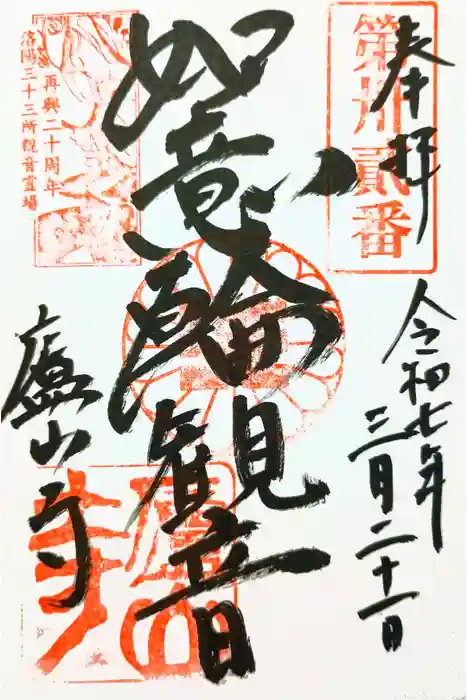 奉拝
第卅貳番
令和七年
三月二十一日
如意輪観音
再興二十周年
洛陽三十三所観音霊場
廬山寺
廬山
寺